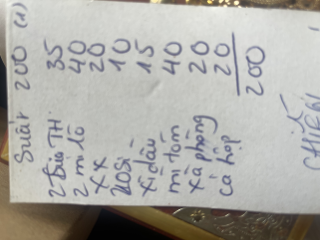 Suất 200 (1)
2 bia TH 35
2 mì lõ 40
XX 20
10
xì dầu 15
mì tôm 40
xà phòng 20
cá hộp 20
200
CHIỀU